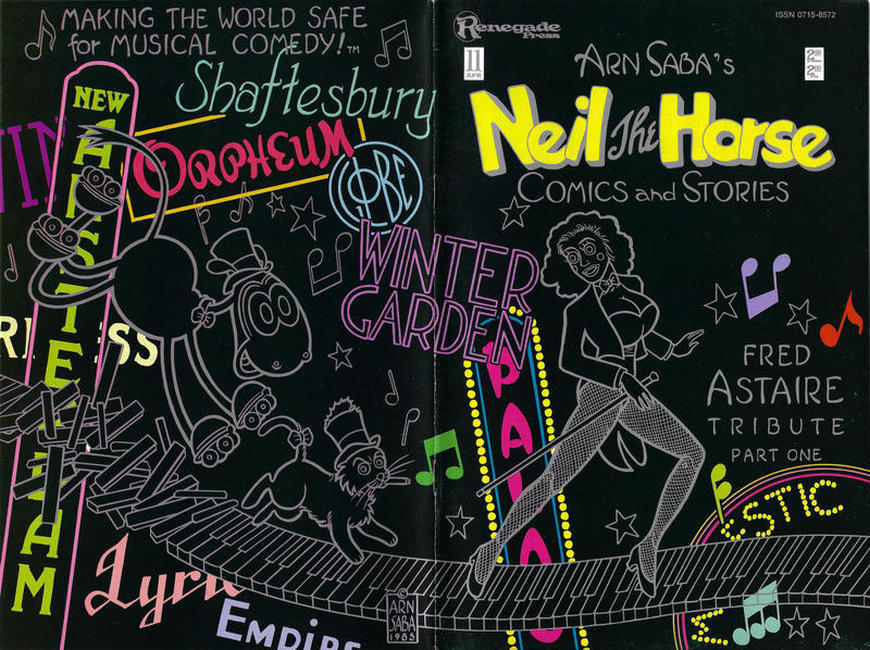 MAKING THE WORLD SAFE
for MUSICAL COMEDY!™
Shaftesbury
NEW
ORPHEUM
GLOBE
WINTER
GARDEN
SS
Lyric
EMPIRE
© ARN
SABA
1985
Renegade
Press
ISSN 0715-8572
11
APR
ARN SABA'S
Neil The Horse
COMICS and STORIES
PALA
FRED
ASTAIRE
TRIBUTE
PART ONE
ESTIC